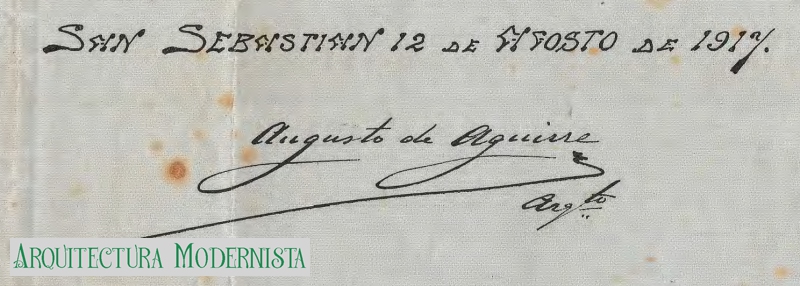 SAN SEBASTIAN 12 DE AGOSTO DE 1917.
Augusto de Aguirre
Arqto
ARQUITECTURA MODERNISTA